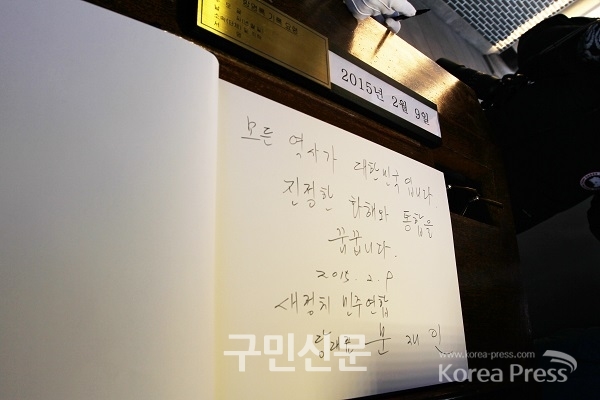 방명록 기록 요령
2015년 2월 9일
모든 역사가 대한민국 입니다.
진정한 화해와 통합을
꿈꿉니다.
2015. 2. 9
새정치 민주연합
당대표 문 재 인
구민신문
www.korea-press.com
Korea Press